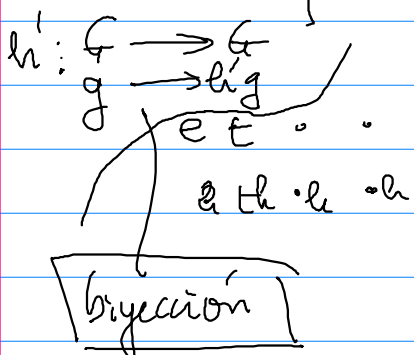 h': G → G
g → h'g
e t · ·
th ·h ·h
biyección